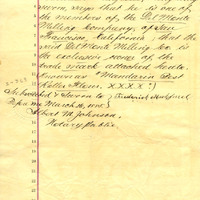 sworn, says that he is one of
the members of the Del Monte
Milling Company, of San
Francisco, California; that the
said Del Monte Milling Co. is
the exclusive owner of the
trade mark attached hereto.
Known as "Mandarin Best
XXXX")
Subscribed & Sworn to
before me March 10,
Albert M. Johnson,
Notary Public